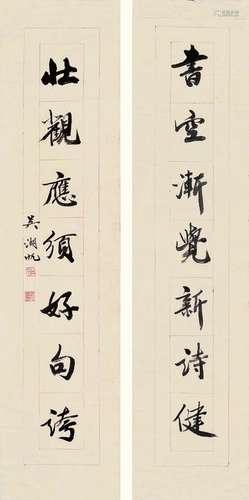 書空漸覺新詩健
壯觀應須好句誇
吳湖帆